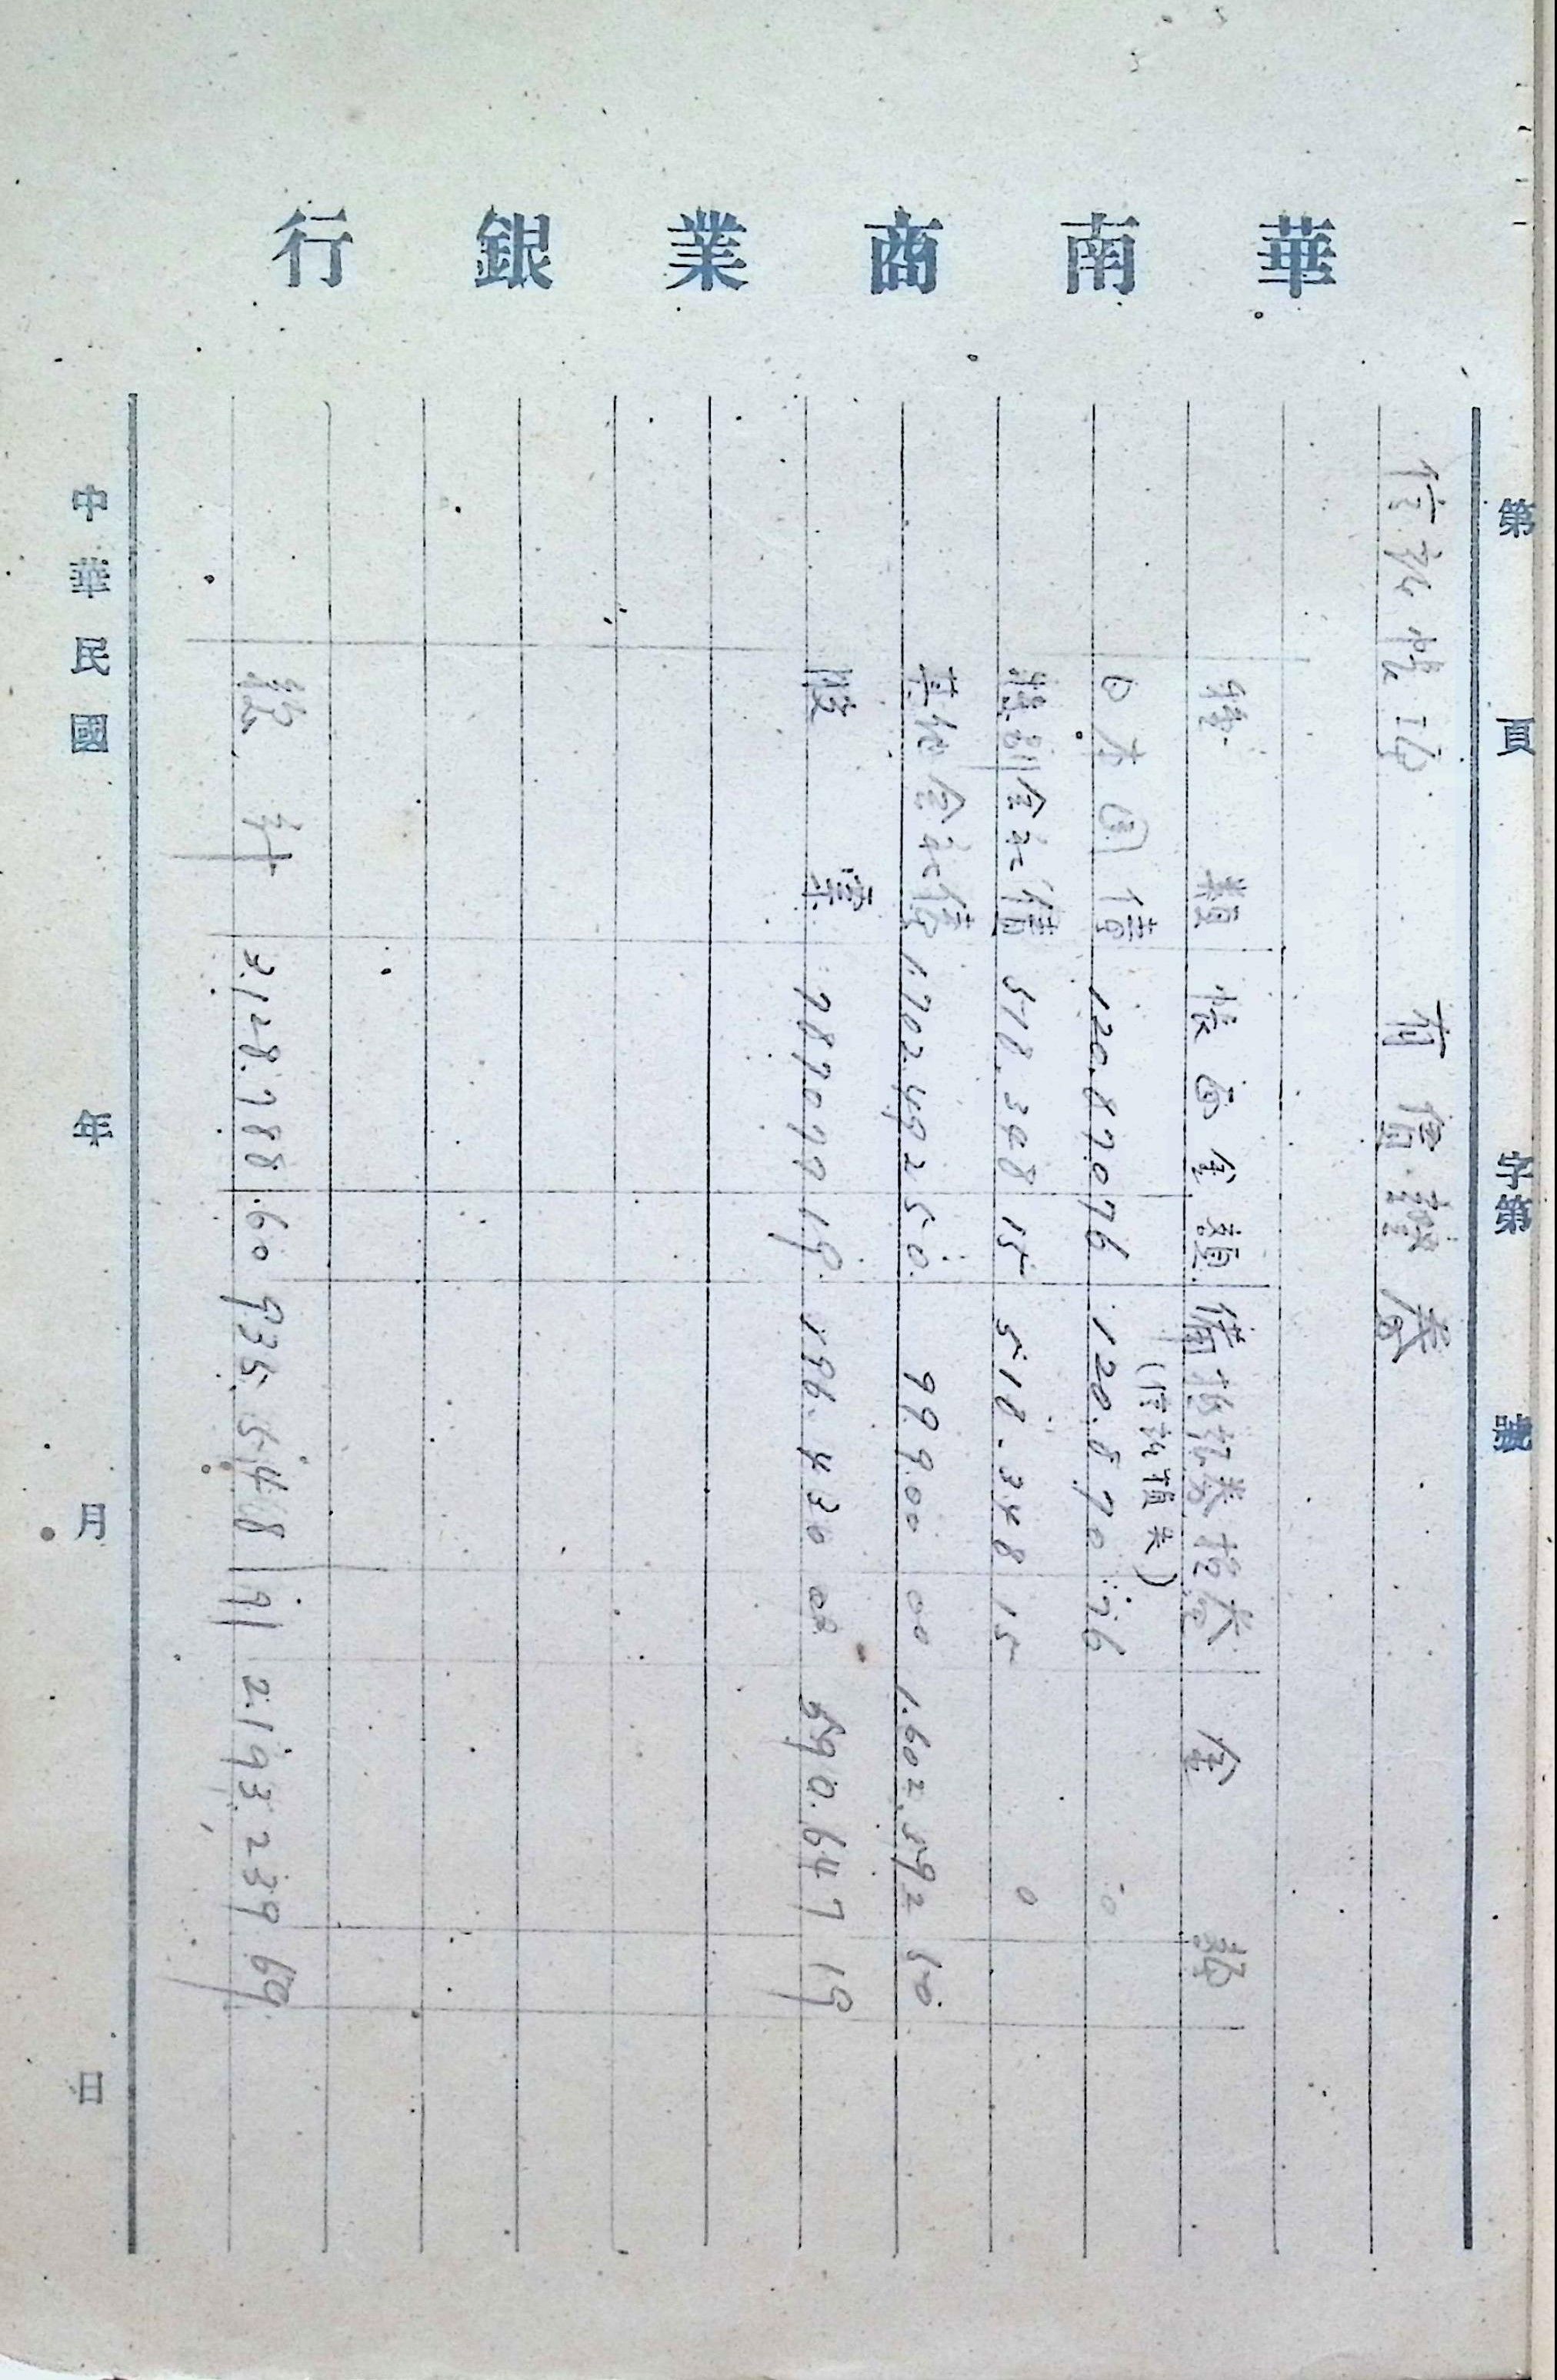 華南商業銀行
第 頁 字第 號
信託帳面 有價證券
種類 帳面金額 金額
(信託損失)
日本國債 120.870 76 120.870 76 0
特別金融債 518.348 15 518.348 15 0
其他金融債 1.702.492 50 99.900 00 1.602.592 50
股票 787.077 19 196.430 00 590.647 19
總計 3.128.788.60 935.548 91 2.193.239 69
中華民國 年 月 日